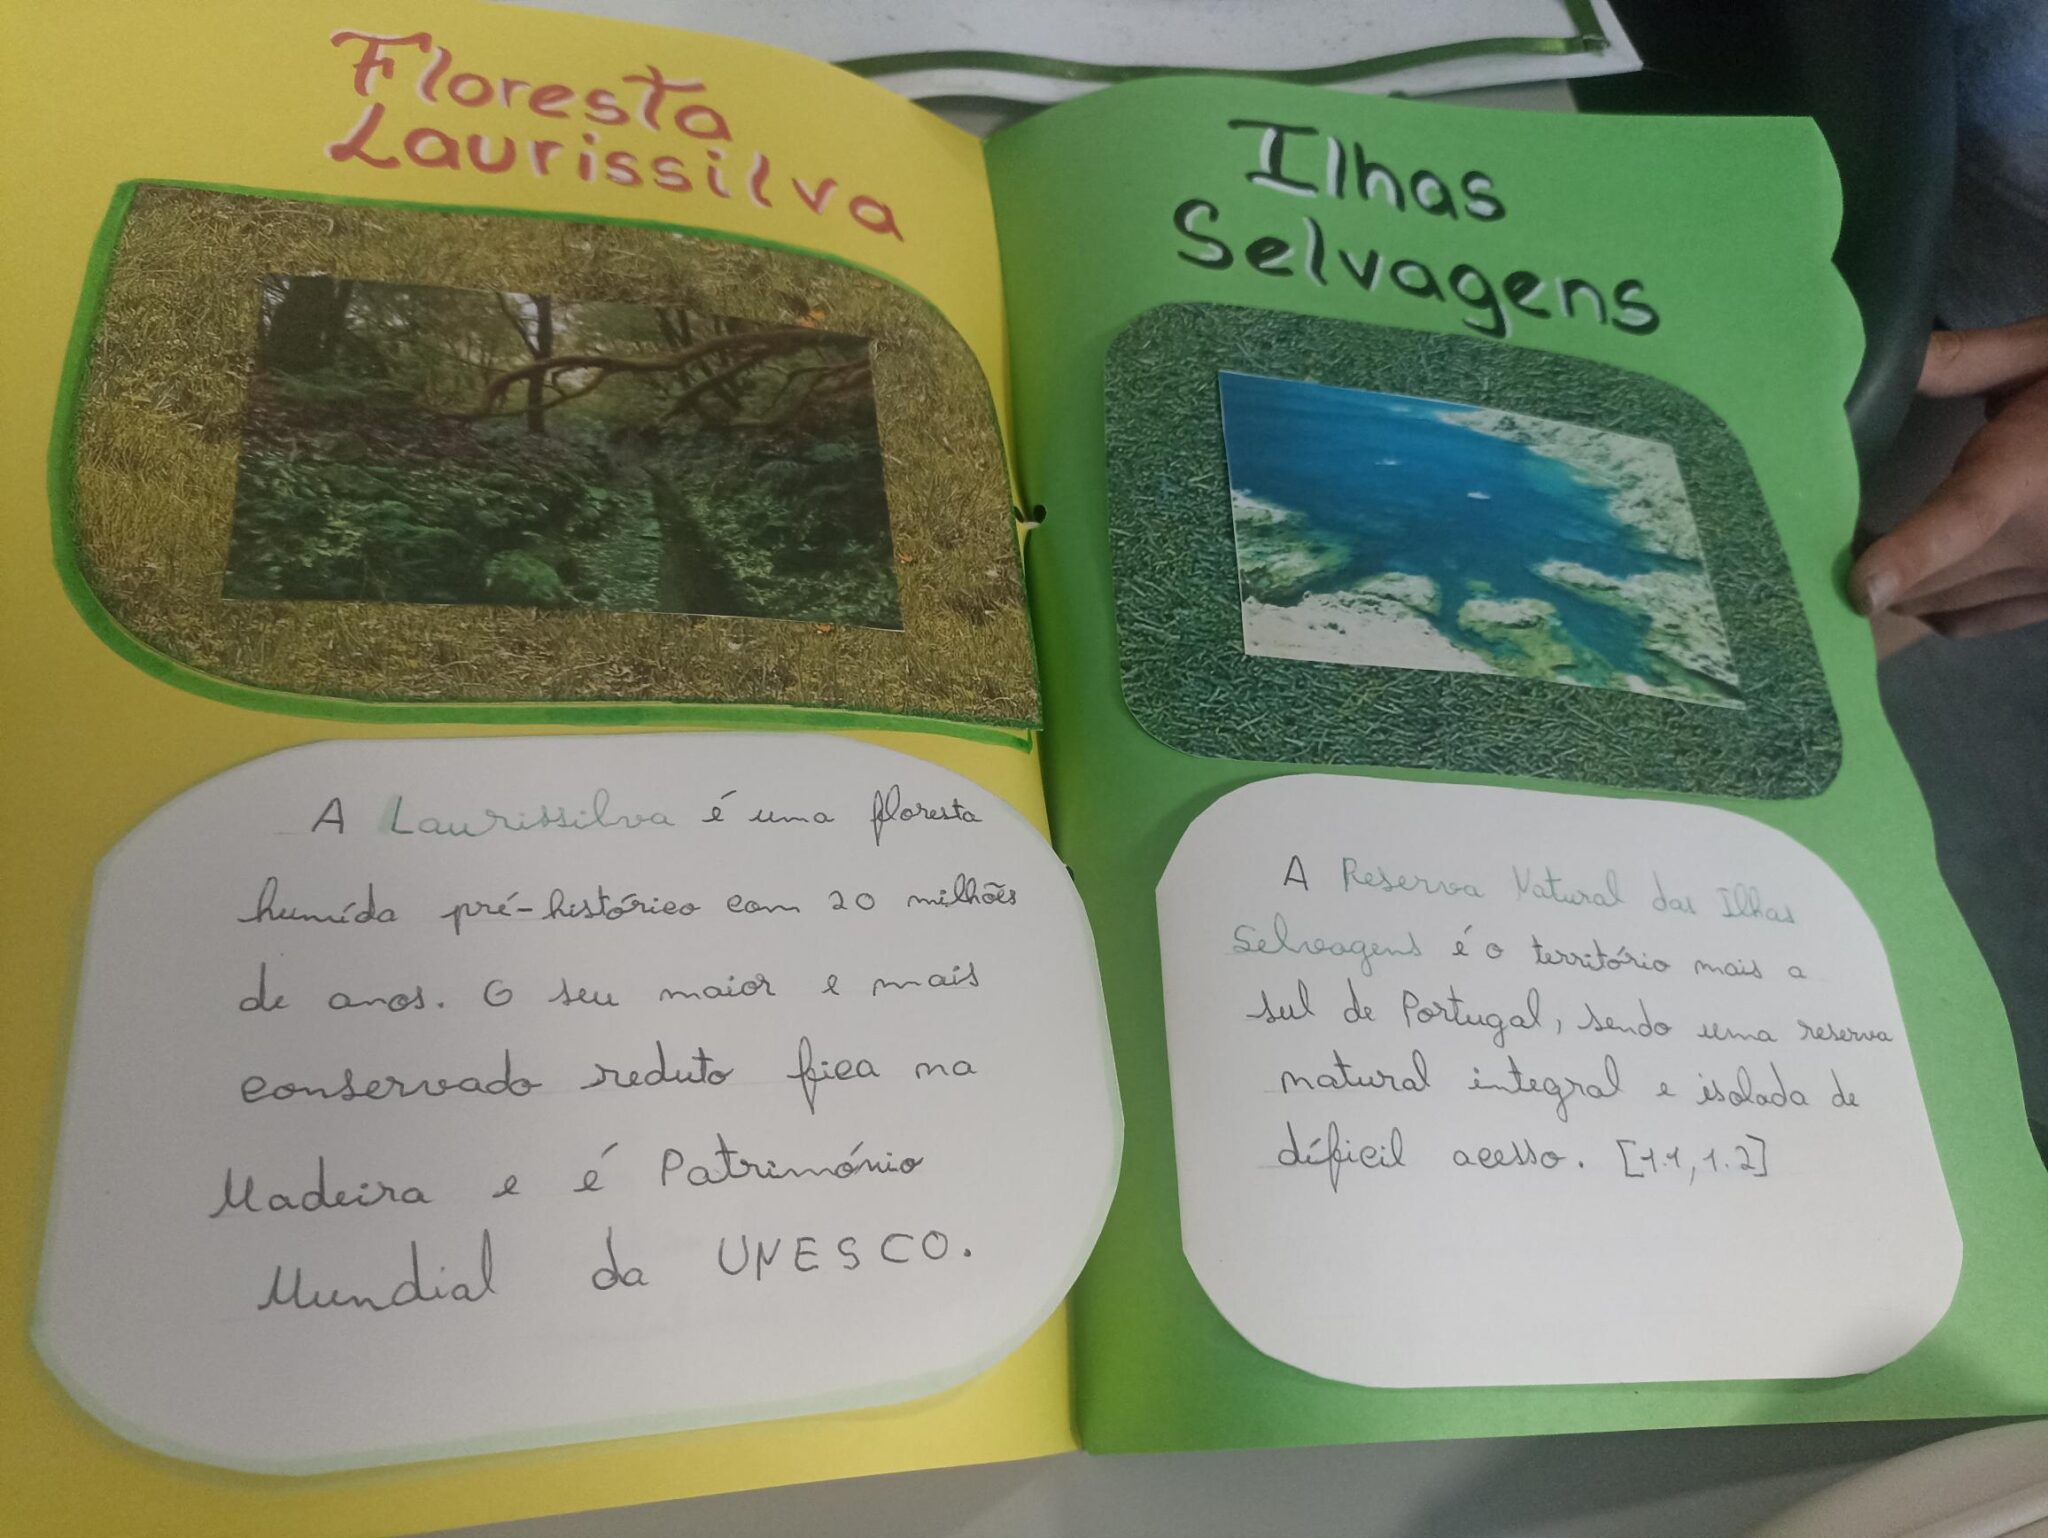 Floresta
Laurissilva
A Laurissilva é uma floresta
humída pré-histórico com 20 milhões
de anos. O seu maior e mais
conservado reduto fica na
Madeira e é Património
Mundial da UNESCO.
Ilhas
Selvagens
A Reserva Natural das Ilhas
Selvagens é o território mais a
sul de Portugal, sendo uma reserva
natural integral e isolada de
díficil acesso. [1.1, 1.2]